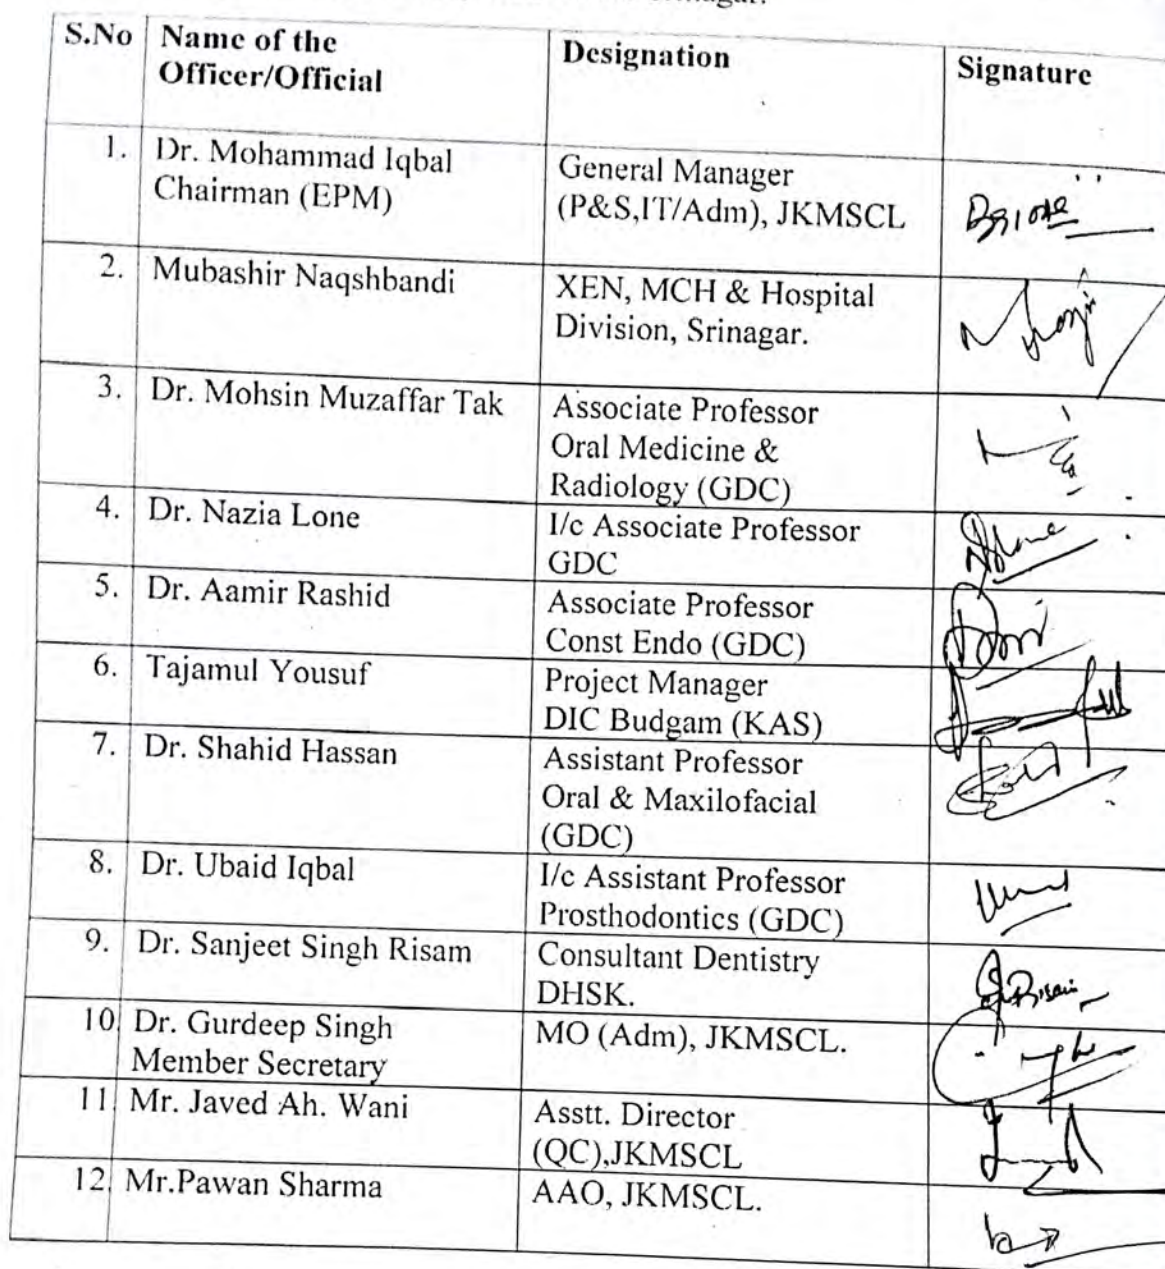 S.No Name of the Designation Signature
Officer/Official
1. Dr. Mohammad Iqbal General Manager
Chairman (EPM) (P&S,IT/Adm), JKMSCL
2. Mubashir Naqshbandi XEN, MCH & Hospital
Division, Srinagar.
3. Dr. Mohsin Muzaffar Tak Associate Professor
Oral Medicine &
Radiology (GDC)
4. Dr. Nazia Lone I/c Associate Professor
GDC
5. Dr. Aamir Rashid Associate Professor
Const Endo (GDC)
6. Tajamul Yousuf Project Manager
DIC Budgam (KAS)
7. Dr. Shahid Hassan Assistant Professor
Oral & Maxilofacial
(GDC)
8. Dr. Ubaid Iqbal I/c Assistant Professor
Prosthodontics (GDC)
9. Dr. Sanjeet Singh Risam Consultant Dentistry
DHSK.
10. Dr. Gurdeep Singh MO (Adm), JKMSCL.
Member Secretary
11. Mr. Javed Ah. Wani Asstt. Director
(QC),JKMSCL
12. Mr.Pawan Sharma AAO, JKMSCL.